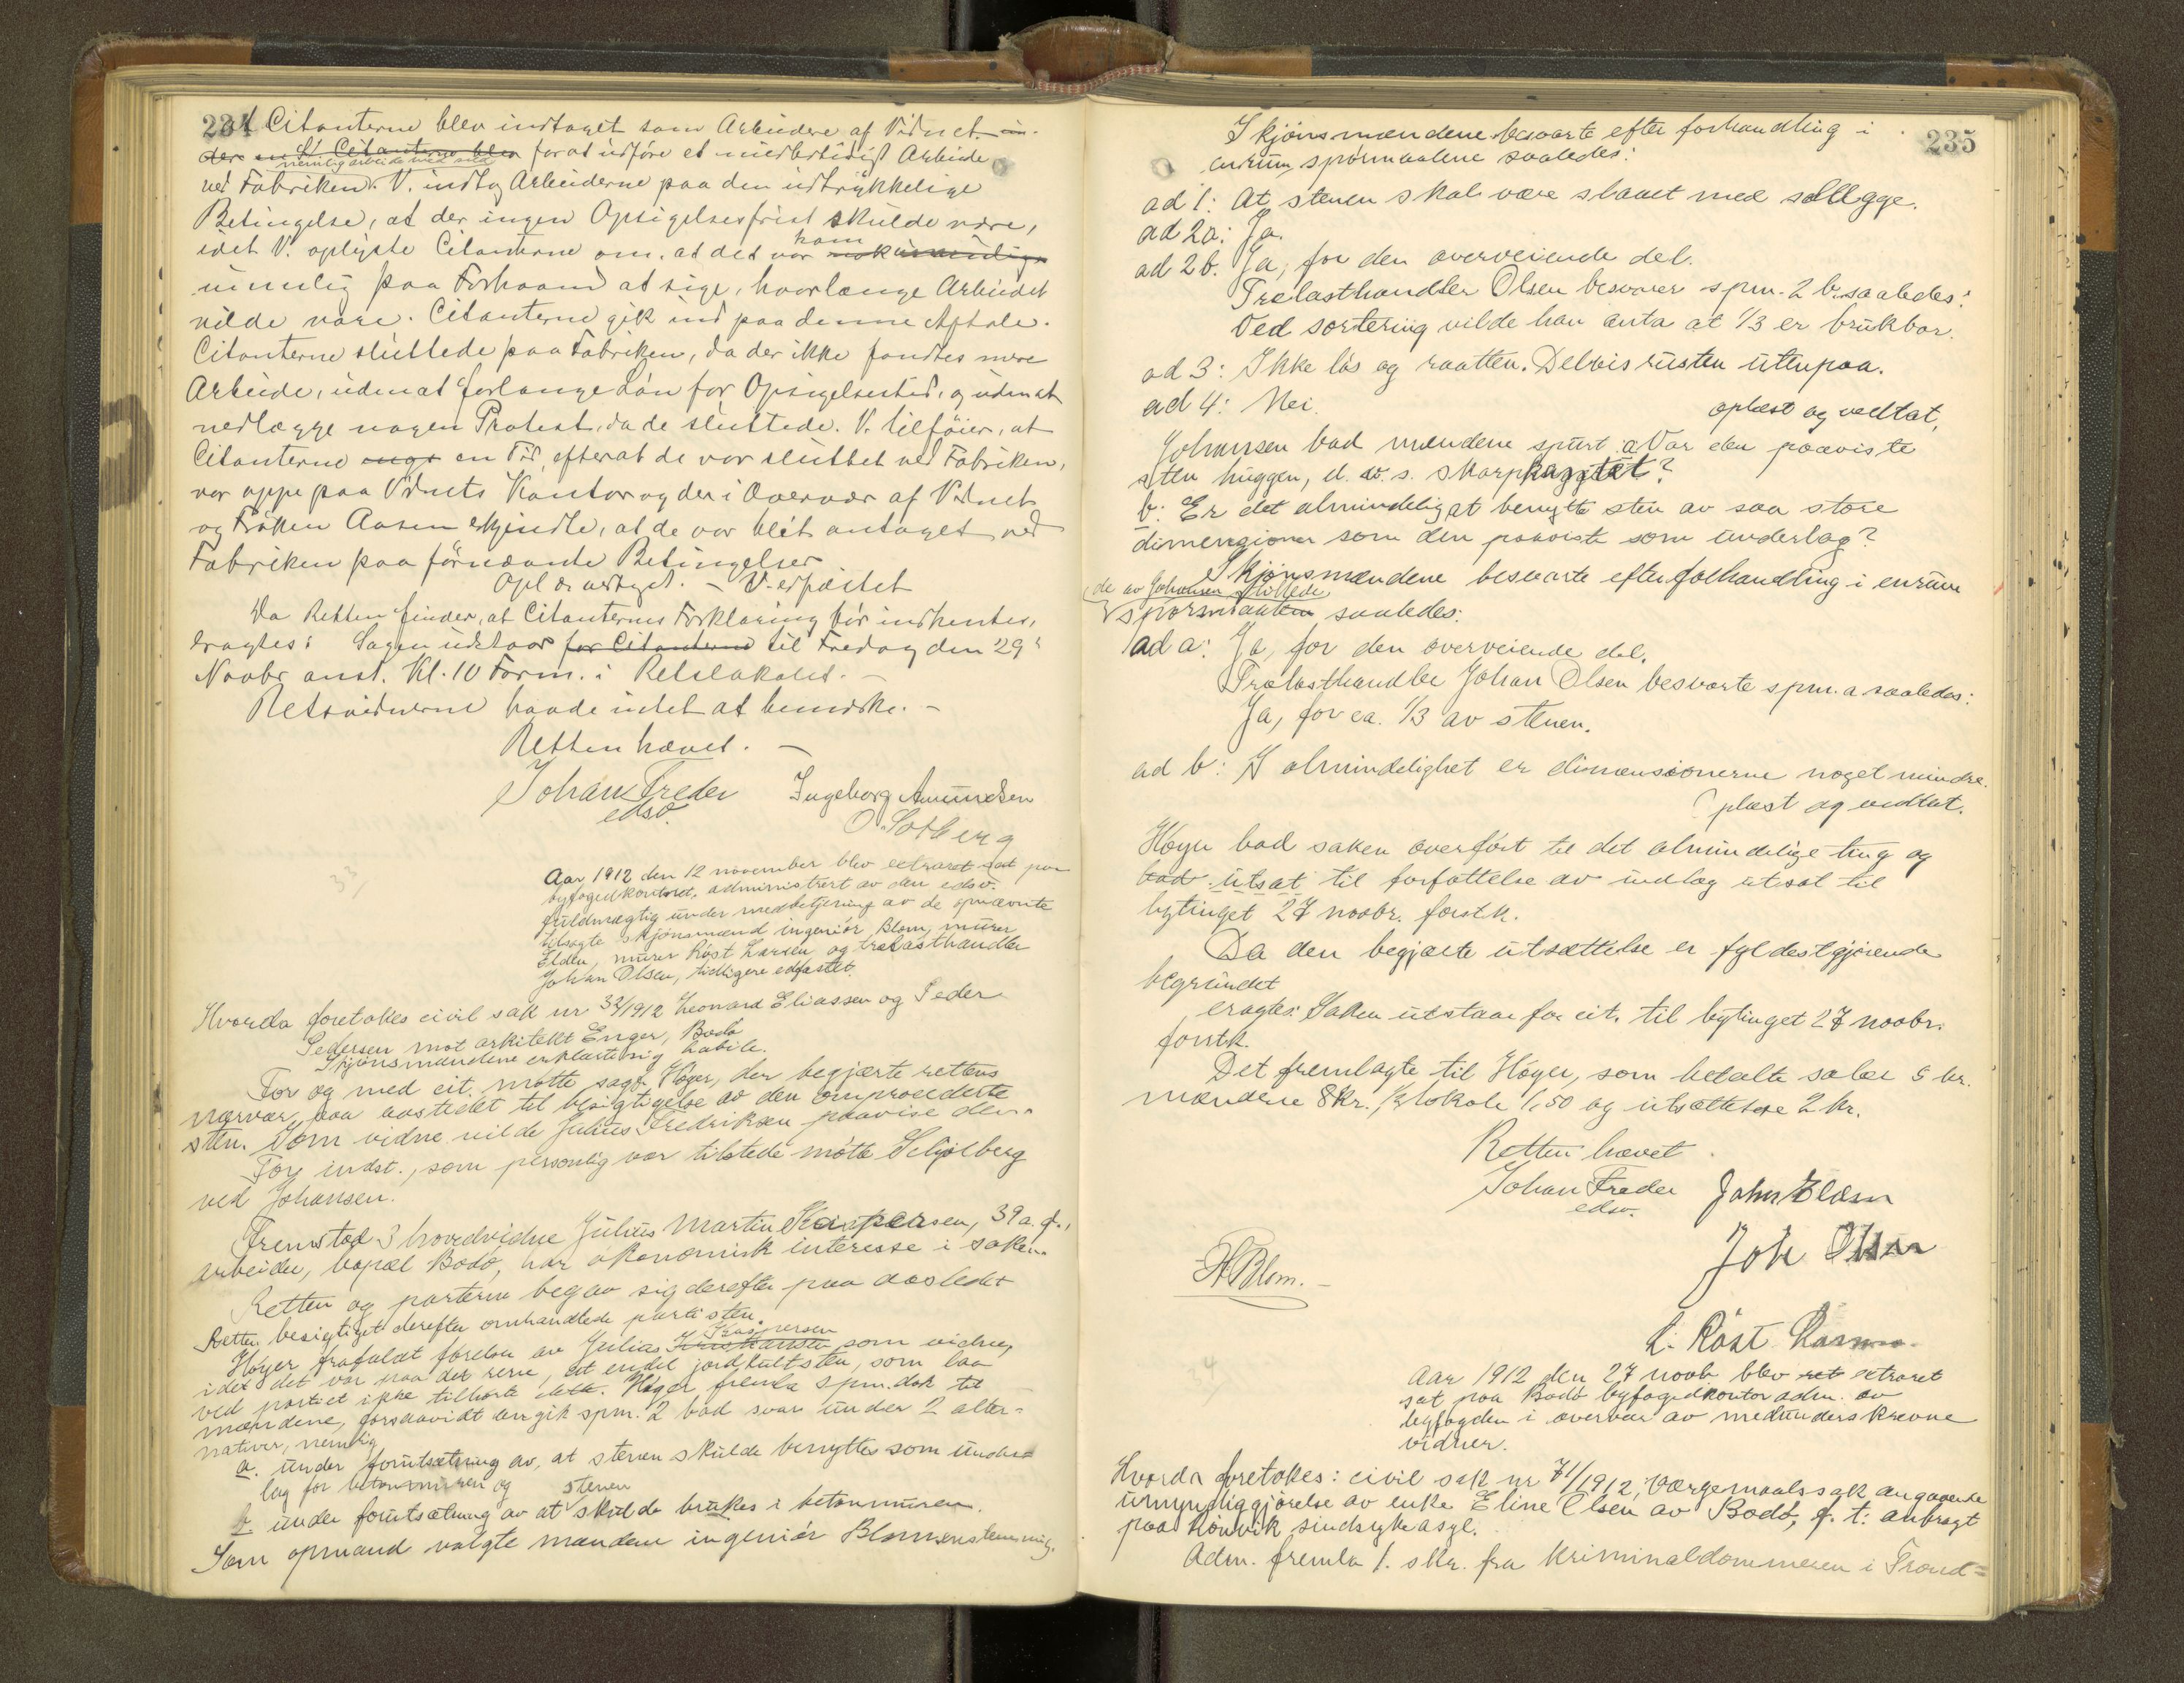 234
at Citanterne blev indtaget som Arbeidere af Vidnet in-
dere en St Citanterne blev for at udføre et midlertidigt Arbeide
nemlig arbeide med sild
ved Fabriken. V. indtog Arbeiderne paa den udtrykkelige
Betingelse, at der ingen Opsigelsesfrist skulde være,
idet V. oplyste Citanterne om, at det var ham
umulig paa Forhaand at sige, hvorlænge Arbeidet
vilde vare. Citanterne gik ind paa denne Aftale.
Citanterne sluttede paa Fabriken, da der ikke fandtes mere
Arbeide, uden at forlange Løn for Opsigelsestid, og uden at
nedlægge nogen Protest, da de sluttede. V. tilføier, at
Citanterne en Tid, efterat de var sluttet ved Fabriken,
var oppe paa Vidnets Kontor og der i Overvær af Vidnet
og Frøken Aasen erkjendte, at de var blet antaget ved
Fabriken paa førnævnte Betingelser
Opl. og vedtaget. – V. edfæstet
Da Retten finder, at Citanternes Forklaring bør indhentes,
eragtes: Sagen udstaar for Citanterne til Fredag den 29de
Novbr anst. Kl. 10 Form. i Retslokalet. –
Retsvidnerne havde intet at bemærke. –
Retten hævet. –
Johan Freder Ingeborg Amundsen
edsv.
O. Solberg
33/
Aar 1912 den 12 november blev extraret sat paa
byfogedkontoret, administrert av den edsv.
fuldmægtig under medbetjening av de opnævnte
tilsagte skjønsmænd ingeniør Blom, murer
Elden, murer Røst Larsen og trælasthandler
Johan Olsen, tidligere edfæstet.
Hvorda foretokes civil sak nr 32/1912 Leonard Eliassen og Peder
Pedersen mot arkitekt Enger, Bodø
Skjønsmændene erklærte sig habile.
For og med cit. møtte sagf. Høyer, der begjærte rettens
nærvær paa aastedet til besigtigelse av den omprocederte
sten. Som vidne vilde Julius Fredriksen paavise den.
For indst., som personlig var tilstede møtte Schjølberg
ved Johansen.
Fremstod 3 hovedvidne Julius Martin Kaspersen, 39 a. g.,
arbeider, bopæl Bodø, har økonomisk interesse i saken.
Retten og parterne begav sig derefter paa aastedet
Retten besigtiget derefter omhandlede parti sten.
Høyer frafaldt førelse av Julius Kaspersen som vidne,
idet det var paa det rene, at endel jordkultsten, som laa
ved partiet ikke tilhørte dette. Høyer fremla spm. dok til
mændene, forsaavidt angik spm. 2 bad svar under 2 alter-
nativer, nemlig
a. under forutsætning av, at stenen skulde benyttes som under-
lag for betonmuren og
b. under forutsætning av at stenen skulde brukes i betonmuren.
Som opmand valgte mændene ingeniør Blom enstemmig.
235
Skjønsmændene besvarte efter forhandling i
enrum spørmaalene saaledes:
ad 1: At stenen skal være slaaet med sættegge.
ad 2a: Ja.
ad 2b. Ja, for den overveiende del.
Trælasthandler Olsen besvarer spm. 2 b. saaledes:
Ved sortering vilde han anta at 1/3 er brukbar.
ad 3: Ikke løs og raatten. Delvis rusten utenpaa.
ad 4: Nei.
oplæst og vedtat,
Johansen bad mændene spurt a Var den paaviste
sten huggen, d. v. s. skarpkantet?
b: Er det almindelig at benytte sten av saa store
dimensjoner som den paaviste som underlag?
Skjønsmændene besvarte efter forhandling i enrum
de av Johansen stillede
spørsmaalene saaledes:
ad a: Ja, for den overveiende del.
Trælasthandler Johan Olsen besvarte spm. a saaledes:
Ja, for ca. 1/3 av stenen.
ad b: I almindelighet er dimensionerne noget mindre.
Oplæst og vedtat.
Høyer bad saken overført til det almindelige ting og
bad utsat til forfattelse av indlæg utsat til
bytinget 27 novbr. førstk.
Da den begjærte utsættelse er fyldestgjørende
begrundet
eragtes: Saken utstaar for cit. til bytinget 27 novbr.
førstk.
Det fremlagte til Høyer, som betalte salær 5 kr.
mændene 8 kr. 1/2 lokale 1,50 og utsættelse 2 kr.
Retten hævet.
Johan Freder John Elden
edsv.
Joh Olsen
H Blom. –
L. Røst Larsen
4
Aar 1912 den 27 novb. blev ret extraret
sat paa Bodø byfogedkontor adm. av
byfogden i overvær av medunderskrevne
vidner.
Hvorda foretokes: civil sak nr 71/1912, Værgemaalssak angaaende
umyndiggjørelse av enke Eline Olsen av Bodø, f. t. anbragt
paa Rønvik sindsykeasyl.
Adm. fremla 1. skr. fra kriminaldommeren i Trond=